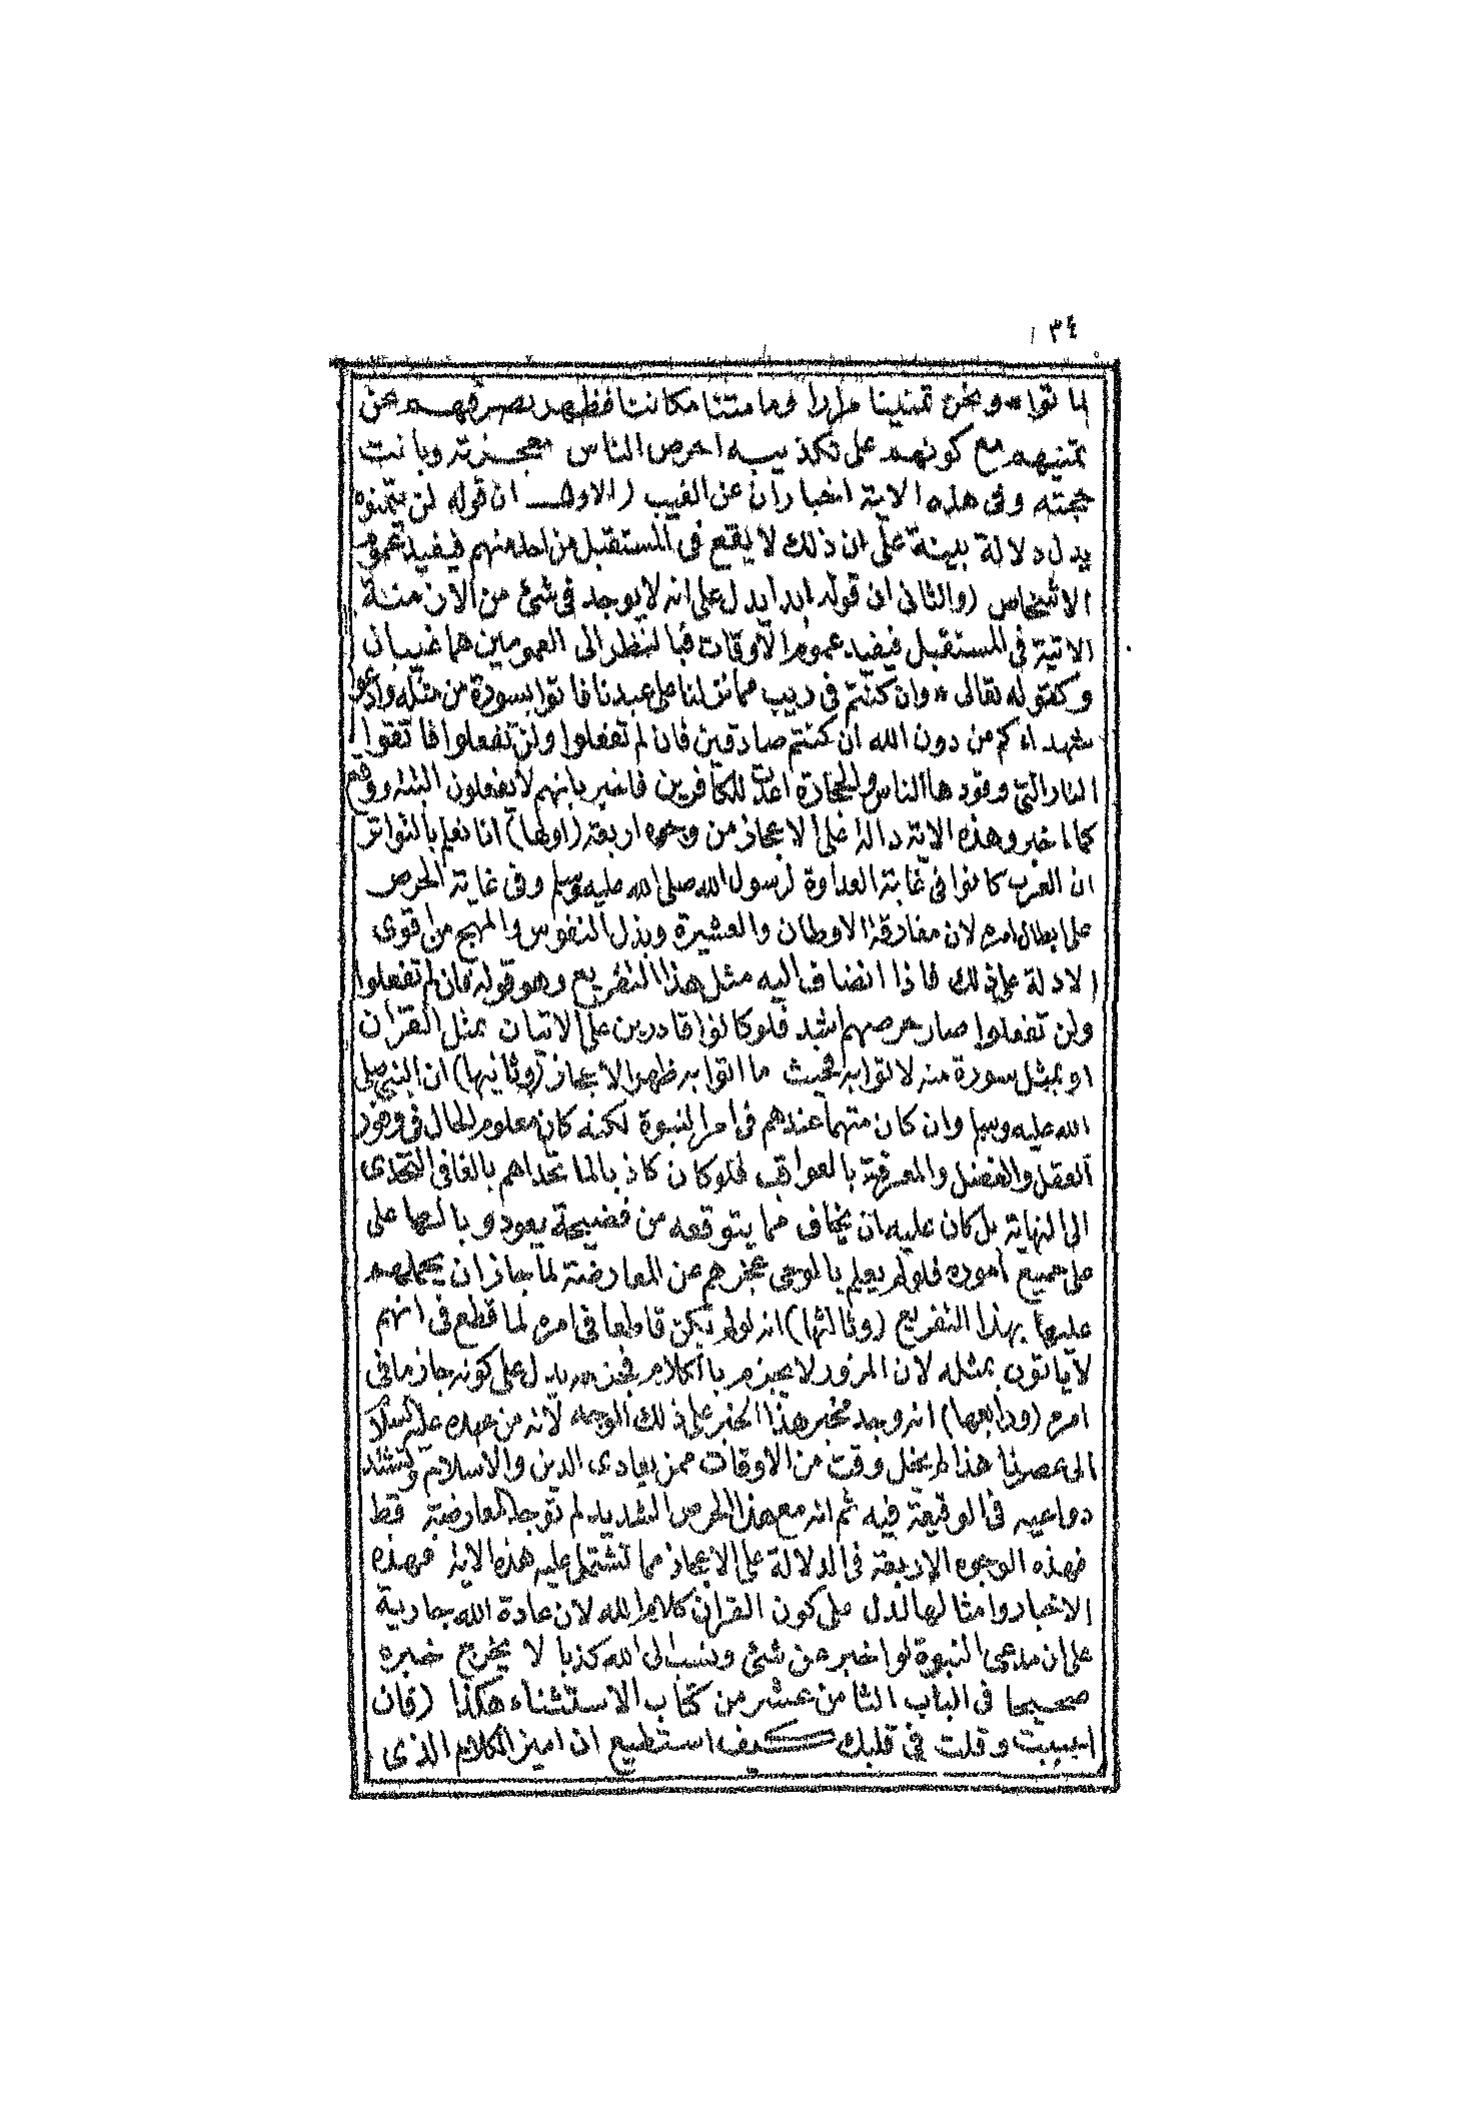 ٣٤
لما توا* ونحن تمنينا مرارا وما متنا مكاننا فظهر بصرفهم عن
تمنيهم مع كونهم على تكذيبه احرص الناس معجزته وبانت
حجته وفى هذه الاية اخباران عن الغيب (الاول ان قوله لن يتمنوه
يدل دلالة بينة على ان ذلك لا يقع فى المستقبل من احد منهم فيفيد عموم
الاشخاص (والثانى ان قوله ابدا يدل على انه لا يوجد فى شئ من الازمنة
الاتية فى المستقبل فيفيد عموم الاوقات فبالنظر الى العمومين هما غيبان
وكقوله تعالى * وان كنتم فى ريب مما نزلنا على عبدنا فاتوا بسورة من مثله وادعوا
شهداءكم من دون الله ان كنتم صادقين فان لم تفعلوا ولن تفعلوا فاتقوا
النار التى وقودها الناس والحجارة اعدت للكافرين فاخبر بانهم لا يفعلون البتة ووقع
كما اخبر وهذه الاية دالة على الاعجاز من وجوه اربعة (اولها) انا نعلم بالتواتر
ان العرب كانوا فى غاية العداوة لرسول الله صلى الله عليه وسلم وفى غاية الحرص
على ابطال امره لان مفارقة الاوطان والعشيرة وبذل النفوس والمهج من اقوى
الادلة على ذلك فاذا انضاف اليه مثل هذا التقريع وهو قوله فان لم تفعلوا
ولن تفعلوا صار حرصهم اشد فلو كانوا قادرين على الاتيان بمثل القران
او بمثل سورة منه لاتوا به فحيث ما اتوا به ظهر الاعجاز (وثانيها) ان النبى صلى
الله عليه وسلم وان كان متهما عندهم فى امر النبوة لكنه كان معلوم الحال فى وفور
العقل والفضل والمعرفة بالعواقب فلو كان كاذبا لما تحداهم بالغا فى التحدى
الى النهاية بل كان عليه ان يخاف مما يتوقعه من فضيحة يعود وبالها على
على جميع اموره فلو لم يعلم بالوحى عجزهم عن المعارضة لما جاز ان يحملهم
عليها بهذا التقريع (وثالثها) انه لو لم يكن قاطعا فى امره لما قطع فى انهم
لا ياتون بمثله لان المزور لا يجزم بالكلام فجزمه يدل على كونه جازما فى
امره (ورابعها) انه وجد مخبر هذا الخبر على ذلك الوجه لانه من عهده عليه السلام
الى عصرنا هذا لم يخل وقت من الاوقات ممن يعادى الدين والاسلام وتشتد
دواعيه فى الوقيعة فيه ثم انه مع هذا الحرص الشديد لم توجد المعارضة قط
فهذه الوجوه الاربعة فى الدلالة على الاعجاز مما تشتمل عليه هذه الاية فهذه
الاخبار وامثالها تدل على كون القران كلام الله لان عادة الله جارية
على ان مدعى النبوة لو اخبر عن شئ ونسب الى الله كذبا لا يخرج خبره
صحيحا فى الباب الثامن عشر من كتاب الاستثناء هكذا (فان
اجبت وقلت فى قلبك كيف استطيع ان اميز الكلام الذى